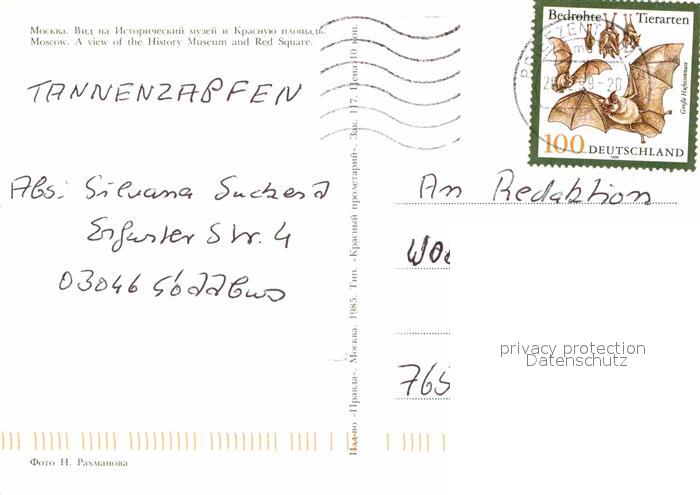 Москва. Вид на Исторический музей и Красную площадь.
Moscow. A view of the History Museum and Red Square.
TANNENZAPFEN
Abs: Silvana
Erfurter Str. 4
03046 Cottbus
Фото Н. Рахманова
Изд-во «Правда», Москва. 1985. Тип. «Красный пролетарий». Зак. 117. Цена 10 коп.
Bedrohte Tierarten
Große Hufeisennase
100 DEUTSCHLAND
BRIEFZENTRUM
An Redaktion
765
privacy protection
Datenschutz